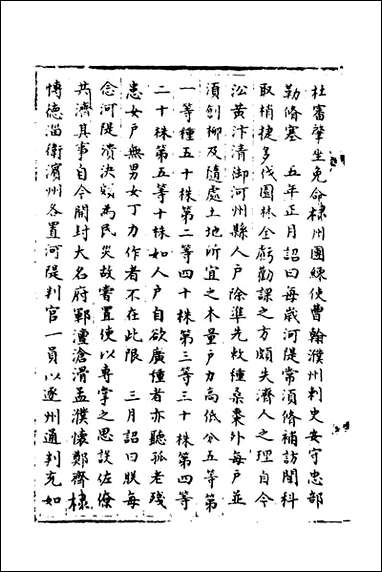 杜審肇坐免命棣州團練使曹翰濮州刺史安守忠部
勒脩塞　五年正月詔曰每歲河隄常須脩補訪聞科
取梢揵多伐園林全虧勸課之方頗失濟人之理自今
㳂黄汴清御河州縣人戶除準先敕種桑棗外每戶並
須創柳及隨處土地所宜之木量戶力高低分五等第
一等種五十株第二等四十株第三等三十株第四等
二十株第五等十株如人戶自欲廣種者亦聽孤老殘
患女戶無男女丁力作者不在此限　三月詔曰朕每
念河隄潰決頗為民災故署置使以專掌之思設佐僚
共濟其事自今開封大名府鄆澶滄滑孟濮懷鄭齊棣
博德淄衛濱州各置河隄判官一員以逐州通判充如